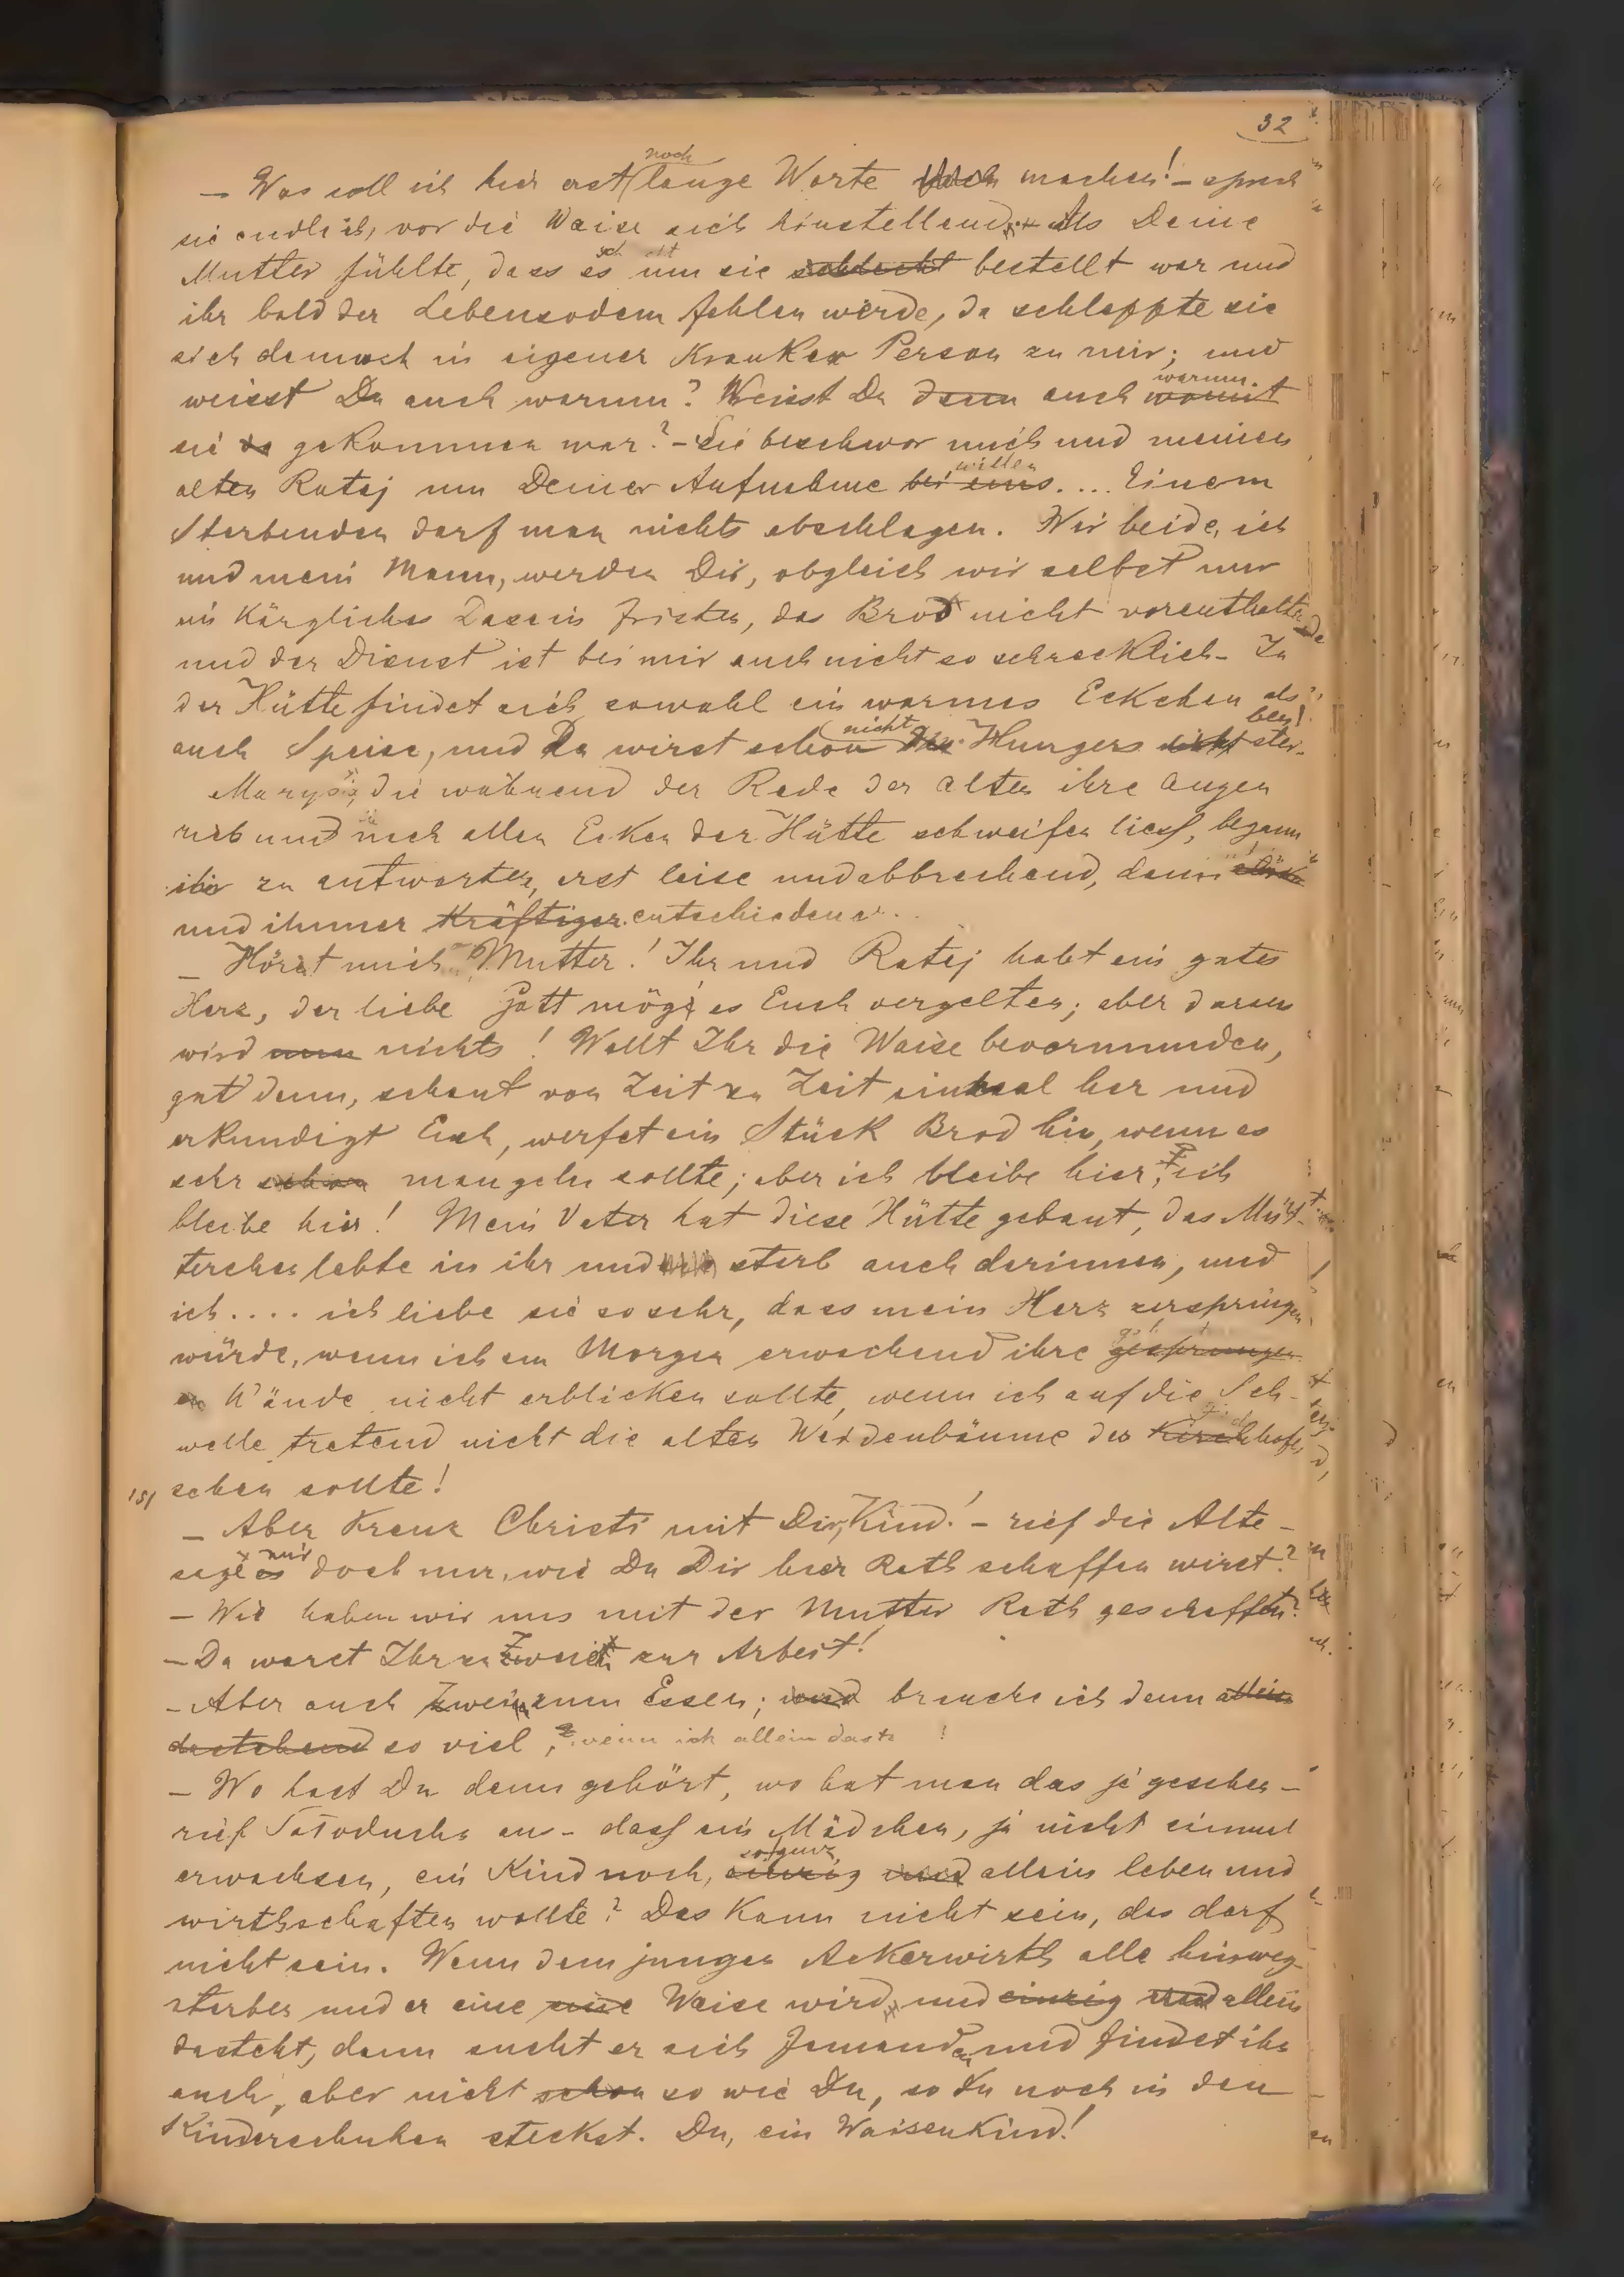 32
— Was soll ich hier erst noch lange Worte machen! — sprach
sie endlich, vor die Waise sich hinstellend. — Als Deine
Mutter fühlte, dass es um sie schlecht bestellt war und
ihr bald der Lebensodem fehlen werde, da schleppte sie
sich dennoch in eigener Kranken Person zu mir; und
weisst Du auch warum? Weisst Du denn auch womit warum
sie da gekommen war? — Sie beschwor mich und meinen
alten Rataj um Deiner Aufnahme bei uns willen.... Einem
Sterbenden darf man nichts abschlagen. Wir beide, ich
und mein Mann, werden Dir, obgleich wir selbst nur
ein Kärgliches Dasein fristen, das Brod nicht vorenthalten
und der Dienst ist bei mir auch nicht so schrecklich — In
der Hütte findet sich sowohl ein warmes Eckchen als
auch Speise, und Du wirst schon nicht Hungers nicht sterben!
Marysia, die während der Rede der Alten ihre Augen
rieb und nach allen Ecken der Hütte schweifen liess, begann
ihr zu antworten, erst leise und abbrechend, dann
und immer kräftiger entschiedener.
— Hört mich Mutter! Ihr und Ratej habt ein gutes
Herz, der liebe Gott möge es Euch vergelten; aber daraus
wird nun nichts! Wollt Ihr die Waise bevormunden,
gut denn, schaut von Zeit zu Zeit einmal her und
erkundigt Euch, werfet ein Stück Brod hin, wenn es
sehr schon mangeln sollte; aber ich bleibe hier, ich
bleibe hier! Mein Vater hat diese Hütte gebaut, das Müt-
terchen lebte in ihr und starb auch darinnen, und
ich.... ich liebe sie so sehr, dass mein Herz zerspringen
würde, wenn ich am Morgen erwachend ihre gesprungen
en Wände nicht erblicken sollte, wenn ich auf die Sch-
welle tretend nicht die alten Weidenbäume des Kirchhofes
sehen sollte!
— Aber Kreuz Christi mit Dir, Kind! — rief die Alte —
sage es mir doch nur, wie Du Dir hier Rath schaffen wirst?
— Wie haben wir uns mit der Mutter Rath geschaffen?
— Da waret Ihr zu Zweit zur Arbeit!
— Aber auch Zwei zum Essen; und brauche ich denn allein
dastehend so viel, wenn ich allein dastehe!
— Wo hast Du denn gehört, wo hat man das je gesehen —
rief Satoducha an — dass ein Mädchen, ja nicht einmal
erwachsen, ein Kind noch, einzig und so ganz allein leben und
wirthschaften wollte? Das Kann nicht sein, das darf
nicht sein. Wenn dem jungen Ackerwirth alle hinweg-
sterben und er eine eine Waise wird, und einzig und allein
dasteht, dann sucht er sich Jemanden und findet ihn
auch, aber nicht schon so wie Du, so Du noch in den
Kinderschuhen steckst. Du, ein Waisenkind!